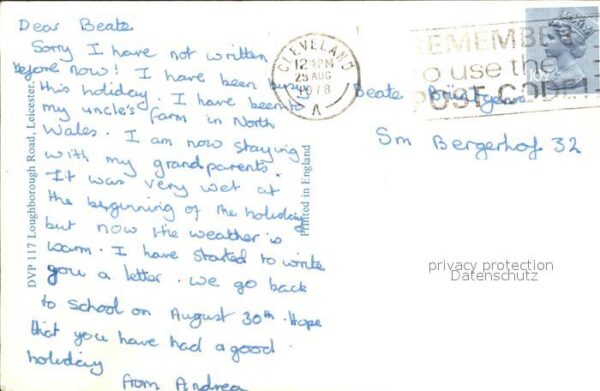 Dear Beate
Sorry I have not written
before now! I have been busy
this holiday. I have been to
my uncle's farm in North
Wales. I am now staying
with my grandparents.
It was very wet at
the beginning of the holiday
but now the weather is
warm. I have started to write
you a letter. We go back
to school on August 30th. Hope
that you have had a good
holiday
from Andrea
DVP 117 Loughborough Road, Leicester.
Printed in England
CLEVELAND
12
PM
AUG
1978
A
REMEMBER
to use the
POST CODE
Beate
Sm Bergerhof 32
privacy protection
Datenschutz